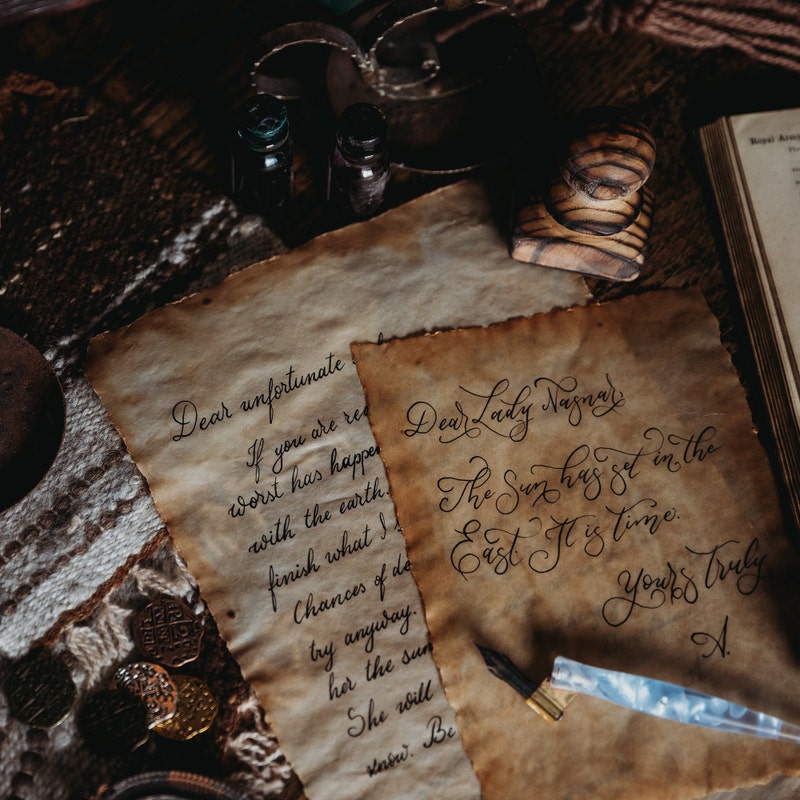 Dear unfortunate
If you are
worst has
with the earth.
finish what I
Chances of
try anyway.
her the sun
She will
know. Be
Dear Lady Nasnar,
The Sun has set in the
East. It is time.
Yours truly
A.
Royal